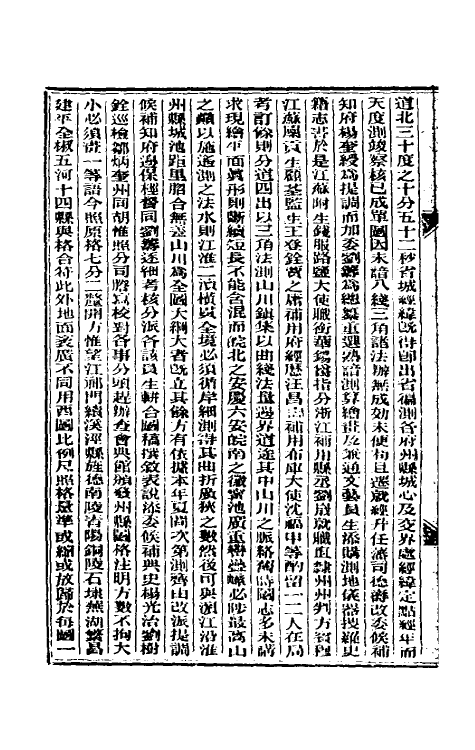 道北三十度之十分五十二秒省城經緯既得卽出省徧測各府州縣城心及交界處經緯定點經年而
天度測竣察核已成單圖因未諳八綫三角諸法辦無成効未便苟且遷就經升任藩司德壽改委候補
知府楊奎綬爲提調而加委劉籌爲總纂重選熟諳測算繪畫及兼通文藝員生添購測地儀器搜羅史
籍志書於是江蘇附生錢服路鹽大使職銜華錫 指分浙江補用縣丞劉 就職直隸州州判方賓程
江蘇廩貢生顧 監生王 銓貢之 補用府經歷汪昌 補用布庫大使沈福申等酌留一二人在局
考訂餘則分道四出以三角法測山川鎮集以曲綫法量邊界道途其中山川之脈絡舊時圖志多未講
求現繪平面眞形則斷續短長不能含混而皖北之安慶六安皖南之徽甯池廣重巒疊嶂必 最高山
之巔以施遙測之法水則江淮二瀆橫貫全境必須循岸細測得其曲折廣狹之數然後可與瀕江沿淮
州縣城池距里脗合無差山川爲全圖大綱大者旣立其餘方有依據本年夏間次第測竣由改派提調
候補知府過保極督同劉籌逐細考核分派各該員生畊合圖稿撰敘表說添委候補典史楊光治劉樹
銓巡檢鄒炳奎州同胡惟照分司謄寫校對各事分頭趕辦查會典館頒發州縣圖格注明方數不拘大
小必須畫一等語今照原格七分二釐開方惟望江祁門績溪涇縣旌德南陵青陽銅陵石埭蕪湖繁昌
建平全椒五河十四縣與格合符此外地面袤廣不同用西國比例尺照格量準或縮或放歸於每圖一